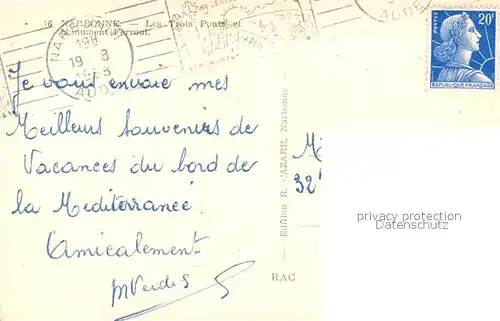 16 NARBONNE. — Les Trois Ponts et
Monument Ferroul.
19H
19 - 8
AUDE
AUDE
POSTES
20F
REPUBLIQUE FRANÇAISE
Je vous envoie mes
Meilleurs Souvenirs de
Vacances du bord de
la Mediterranée.
Amicalement
Edition R. CAZARE, Narbonne
RAC
M
32
privacy protection
www.akpool.de